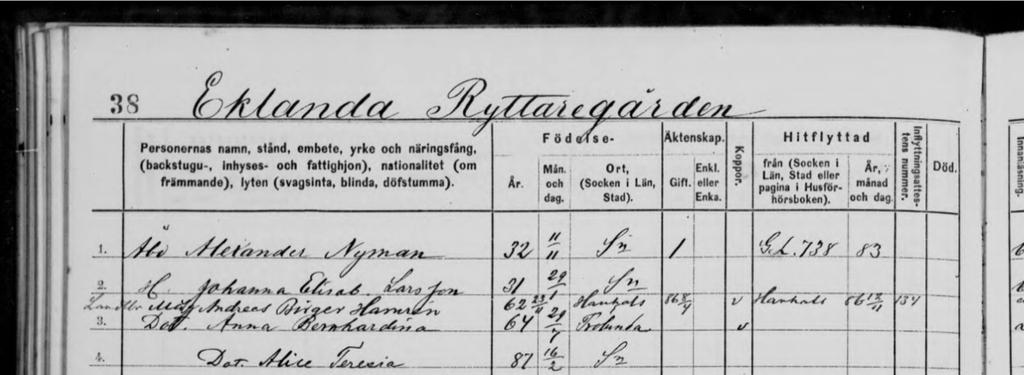 38 Eklanda Ryttaregården
Personernas namn, stånd, embete, yrke och näringsfång, (backstugu-, inhyses- och fattighjon), nationalitet (om främmande), lyten (svagsinta, blinda, döfstumma).
Födelse-
År.
Mån. och dag.
Ort, (Socken i Län, Stad).
Äktenskap.
Gift.
Enkl. eller Enka.
Koppor.
Hitflyttad
från (Socken i Län, Stad eller pagina i Husförhörsboken).
År, månad och dag.
Inflyttningsattestens nummer.
Död.
1. Åbo Alexander Nyman 32 11/11 Sn 1 G.L. 738 83
2. H. Johanna Elisab. Larsson 31 29/1 Sn
Andreas Birger Hamren 62 23/11 Hanhals 86 v Hanhals 86 12/11 134
3. Dot. Anna Bernhardina 64 29/7 Frölunda v
4. Dot. Alice Teresia 87 16/2 Sn